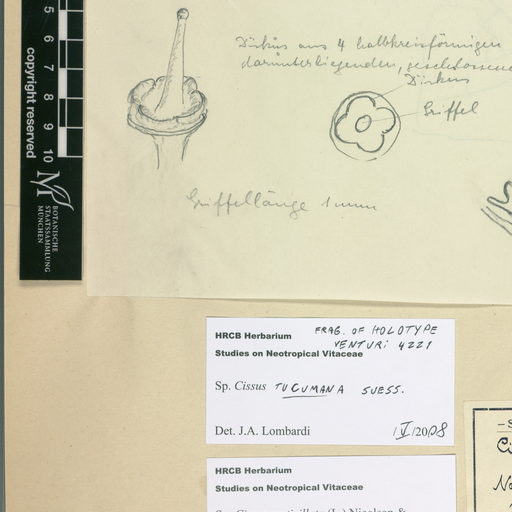 5
6
7
8
9
10
copyright reserved
BOTANISCHE
STAATSSAMMLUNG
MÜNCHEN
Diskus aus 4 halbkreisförmigen
darunterliegenden, geschlossene
Diskus
Griffel
Griffellänge 1 mm
HRCB Herbarium
FRAG. OF HOLOTYPE
VENTURI 4221
Studies on Neotropical Vitaceae
Sp. Cissus TUCUMANA SUESS.
Det. J.A. Lombardi /V/2008
HRCB Herbarium
Studies on Neotropical Vitaceae